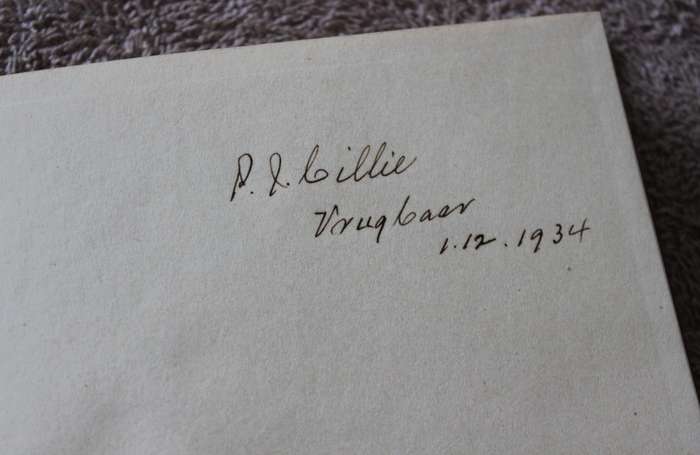 P. J. Cillie
Vrugbaar
1.12.1934